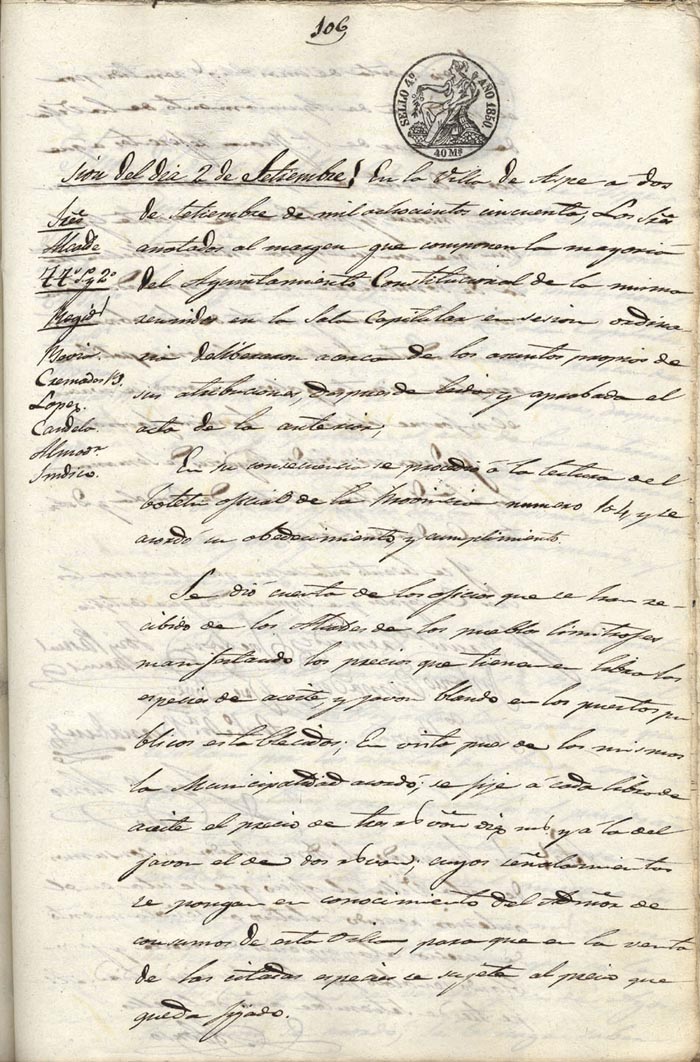 106
SELLO 4º AÑO 1850
40 Ms
sion del dia 2 de Setiembre
En la Villa de Aspe a dos
de setiembre de mil ochocientos cincuenta, Los Sres
anotados al margen que componen la mayoria
del Ayuntamiento Constitucional de la misma
reunidos en la Sala Capitular en sesion ordina
ria deliberaron acerca de los asuntos propios de
sus atribuciones, despues de leida, y aprobada el
acta de la anterior,
Sres
Alcalde
1º y 2º
Regid
Cremades B.
Lopez.
Candela
Almodr
Sindico.
En su consecuencia se procedió a la lectura del
boletin oficial de la Provincia numero 104, y se
acordo su obedecimiento y cumplimiento
Se dió cuenta de los oficios que se han re-
cibido de los Alcaldes de los pueblos limitrofes
manifestando los precios que tienen en libra las
especies de aceite, y javon blando en los puestos pu
blicos establecidos; En vista pues de los mismos
la Municipalidad acordó; se fije á cada libra de
aceite el precio de tres rs von diez ms y a la del
javon el de dos rs von; cuyos señalamientos
se pongan en conocimiento del Admor de
consumos de esta Villa, para que en la venta
de las citadas especies se sujete al precio que
queda fijado.